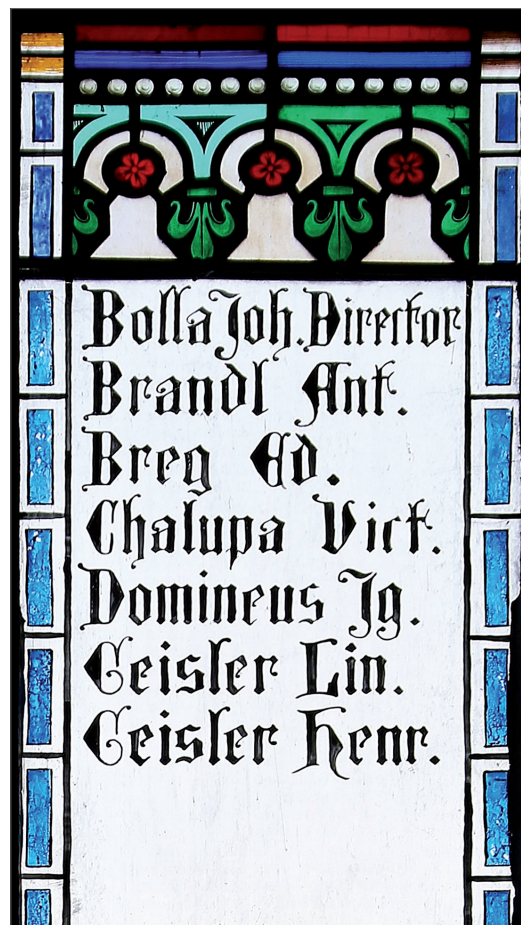 Bolla Joh. Director
Brandl Ant.
Breg Ed.
Chalupa Vict.
Domineus Ig.
Geisler Lin.
Geisler Henr.